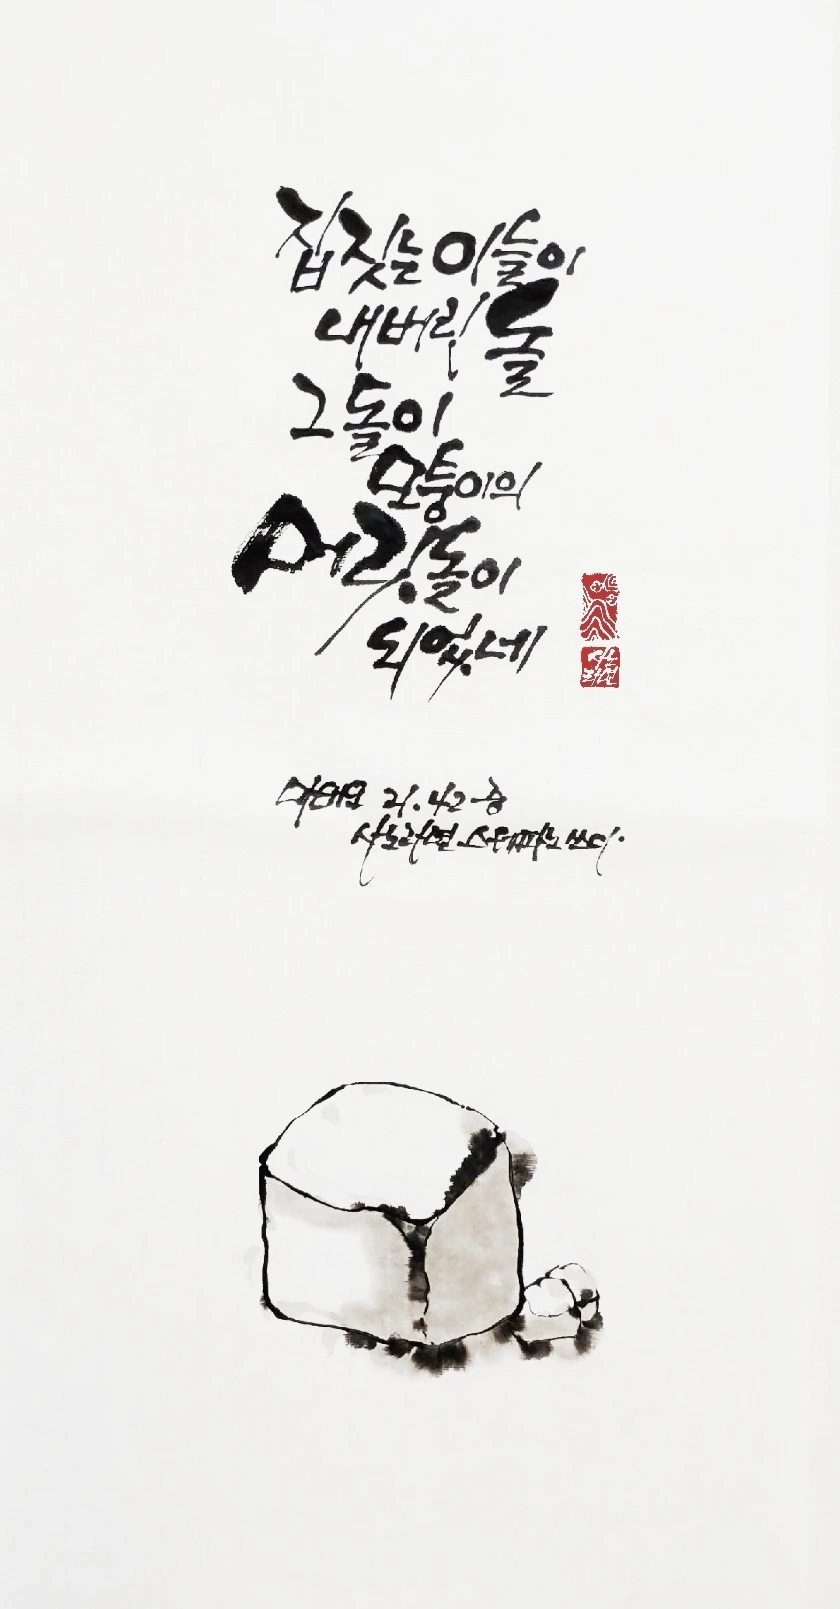 집 짓는 이들이
내버린 돌
그 돌이
모퉁이의
머릿돌이
되었네
마태오 21.42 중
스테파노 쓰다.